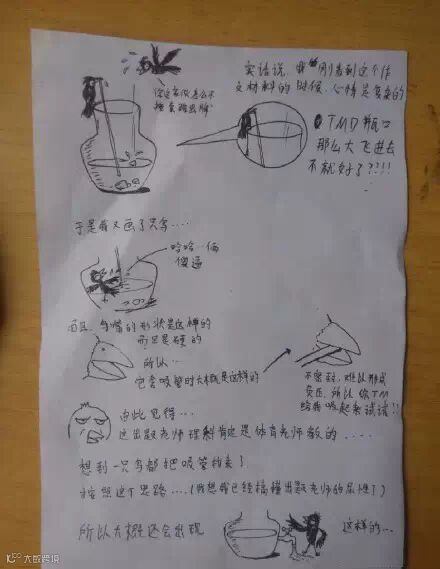 实话说,我刚看到这个作
文材料的时候,心情是复杂的
你这家伙怎么不
按套路出牌
TMD瓶口
那么大飞进去
不就好了???!!!
于是我又画了只鸟····
哈哈一俩
傻逼
而且,鸟嘴的形状是这样的
而且是硬的
所以···
它含吸管时大概是这样的
不密封,难以形成
负压,所以你TM
给我吸起来试试!!
由此见得···
这出题老师理科肯定是体育老师教的····
想到一只鸟都把吸管拍来了
按照这个思路····(我想我已经搞懂出题老师的尿性了)
所以大概还会出现
这样的···
大数跨境